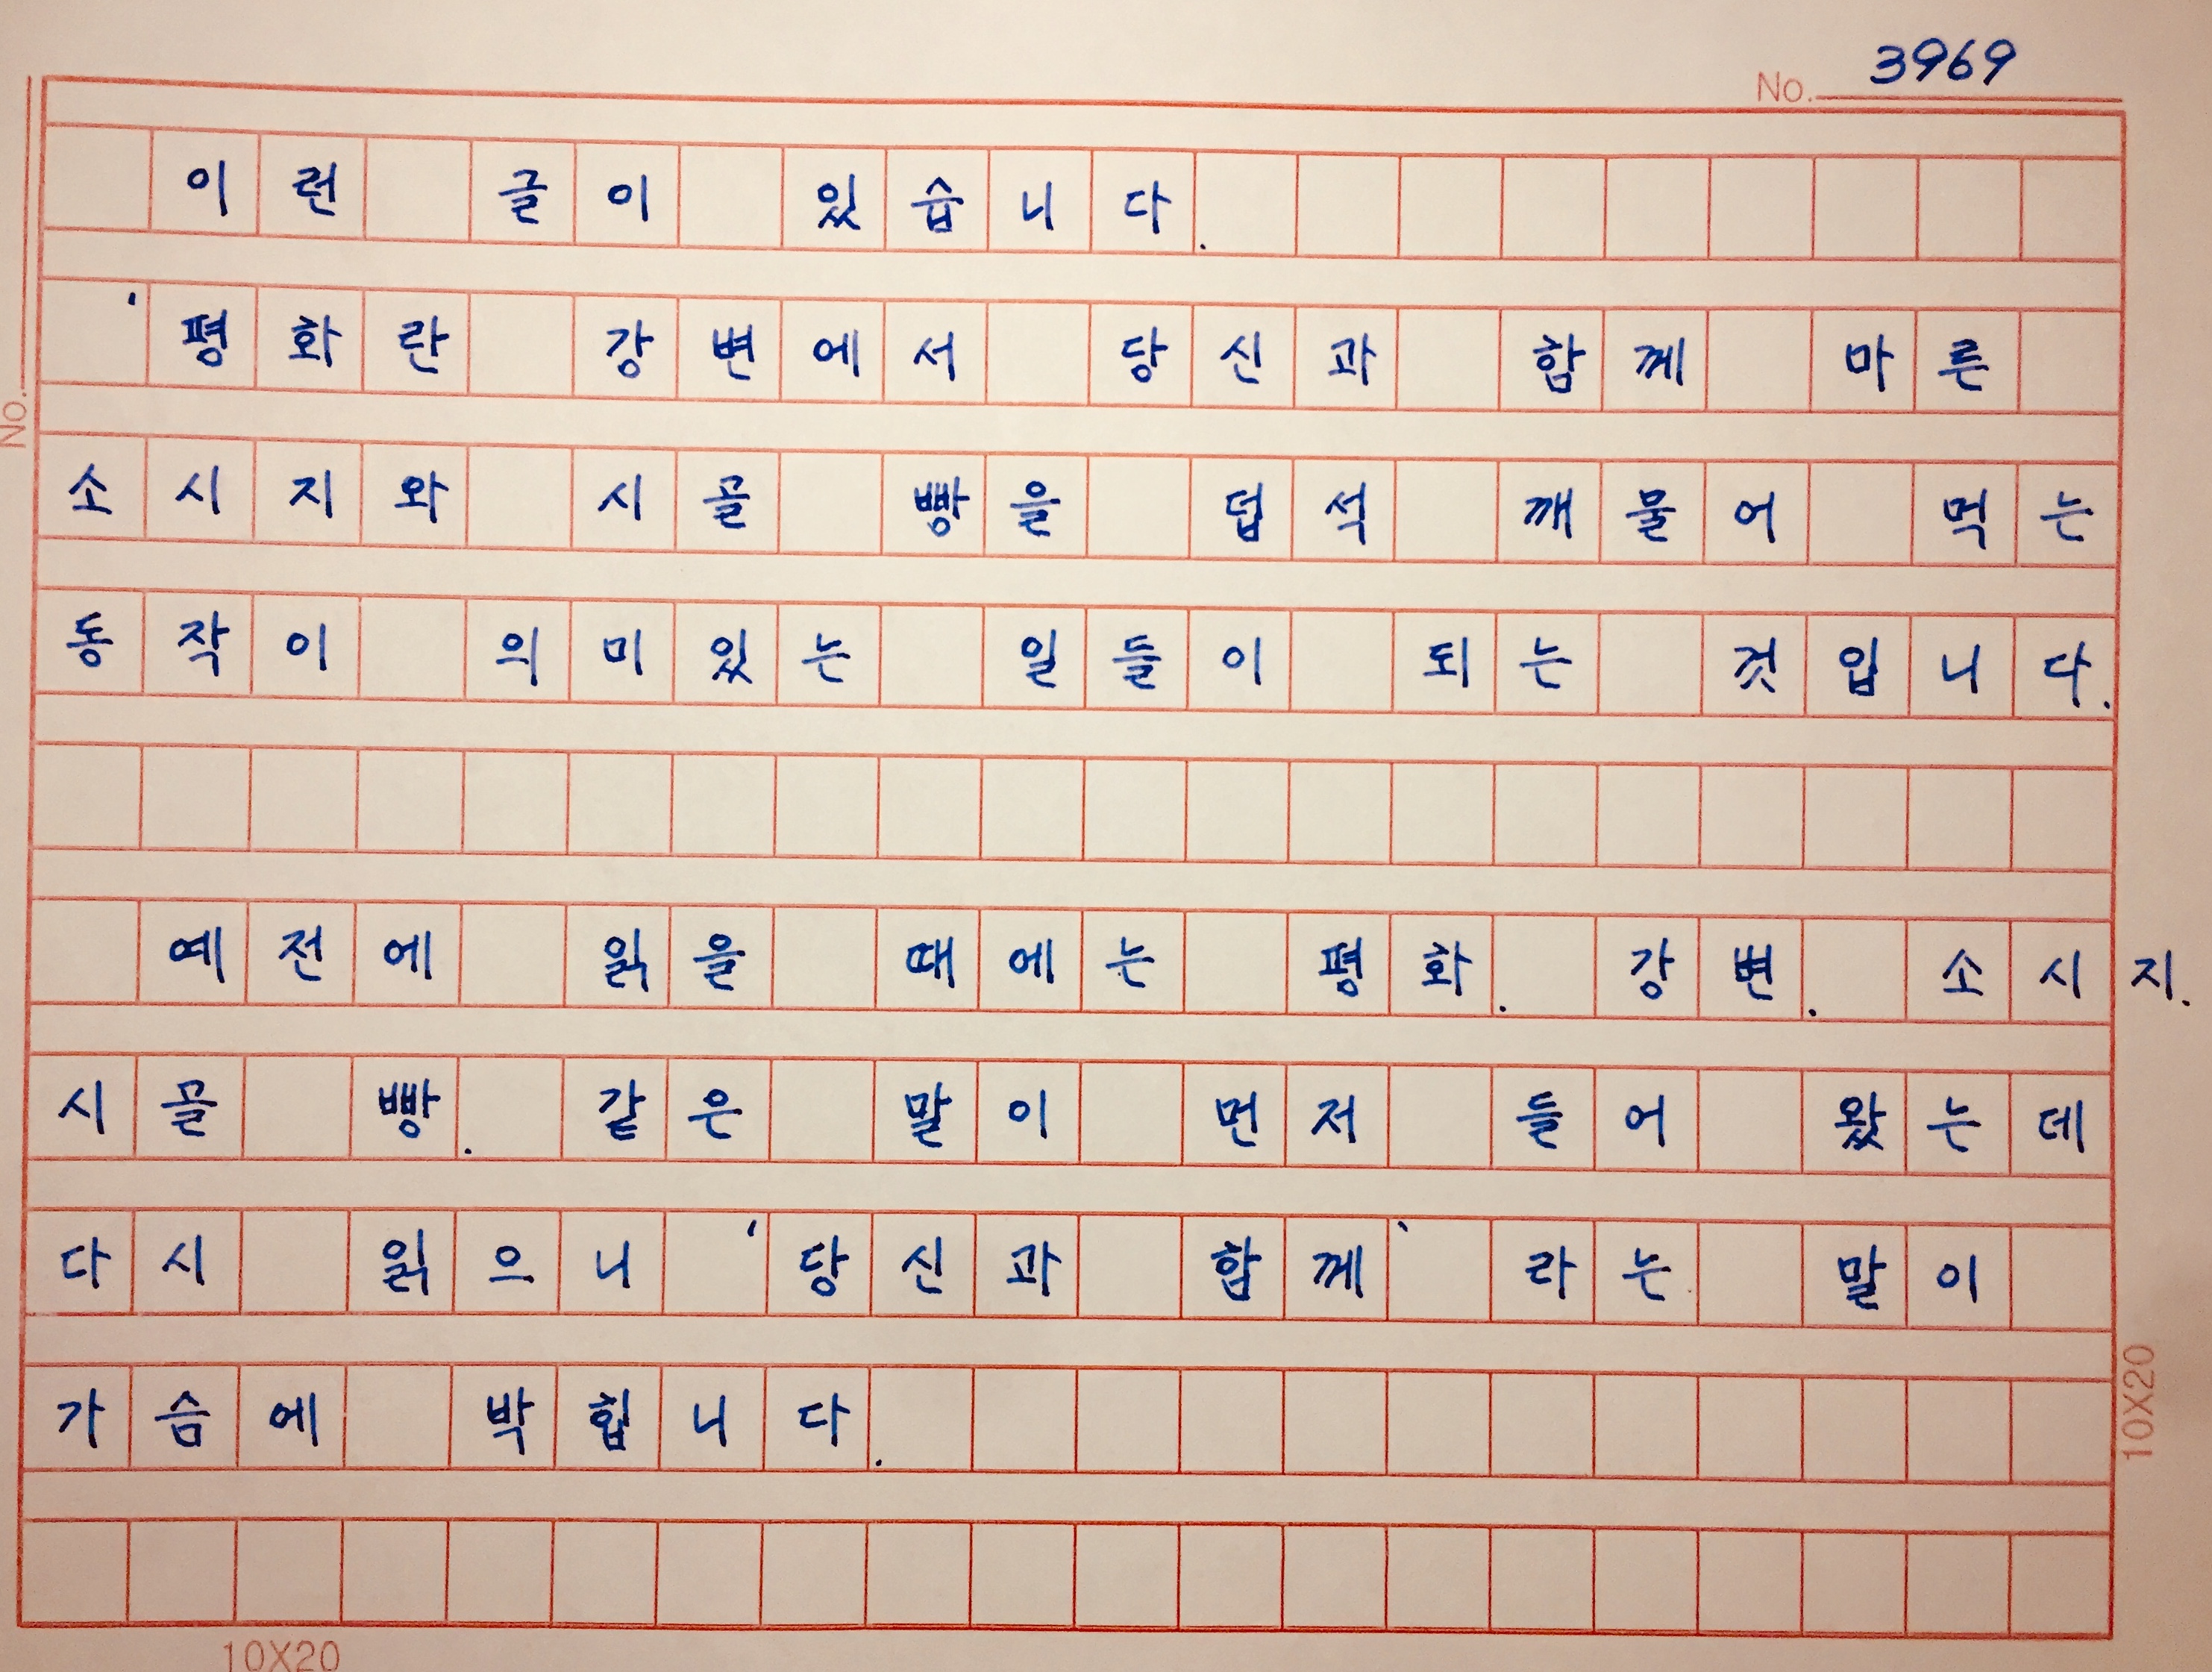 No. 3969
이런 글이 있습니다.
'평화란 강변에서 당신과 함께 마른
소시지와 시골 빵을 덥석 깨물어 먹는
동작이 의미있는 일들이 되는 것입니다.
예전에 읽을 때에는 평화. 강변. 소시지.
시골 빵. 같은 말이 먼저 들어 왔는데
다시 읽으니 '당신과 함께' 라는 말이
가슴에 박힙니다.
No.
10X20
10X20